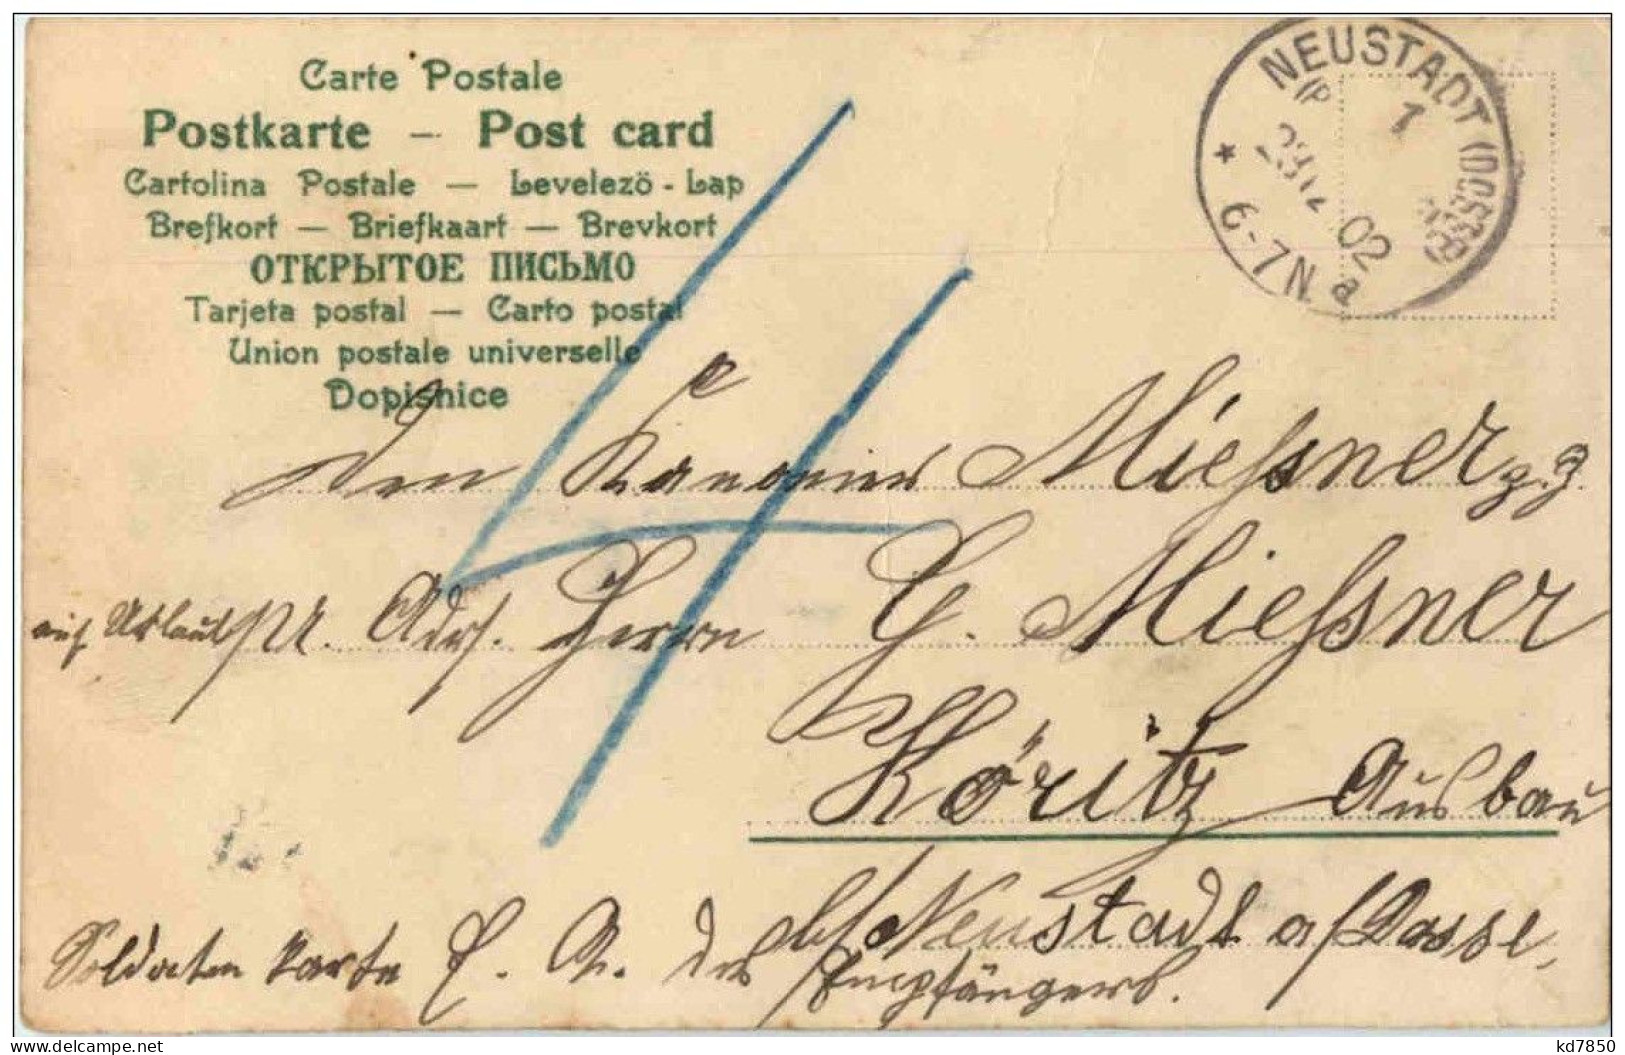 Carte Postale
Postkarte — Post card
Cartolina Postale — Levelezö-Lap
Brefkort — Briefkaart — Brevkort
ОТКРЫТОЕ ПИСЬМО
Tarjeta postal — Carto postal
Union postale universelle
Dopisnice
NEUSTADT (DOSSE)
1
02
6-7N. a
Den Kanonier Miessner z.Z.
auf Urlaub pr. Adrs. Herrn G. Miessner
Köritz Ausbau
b/Neustadt a/Dosse,
Soldaten karte E. A. des Empfängers.
delcampe.net
kd7850